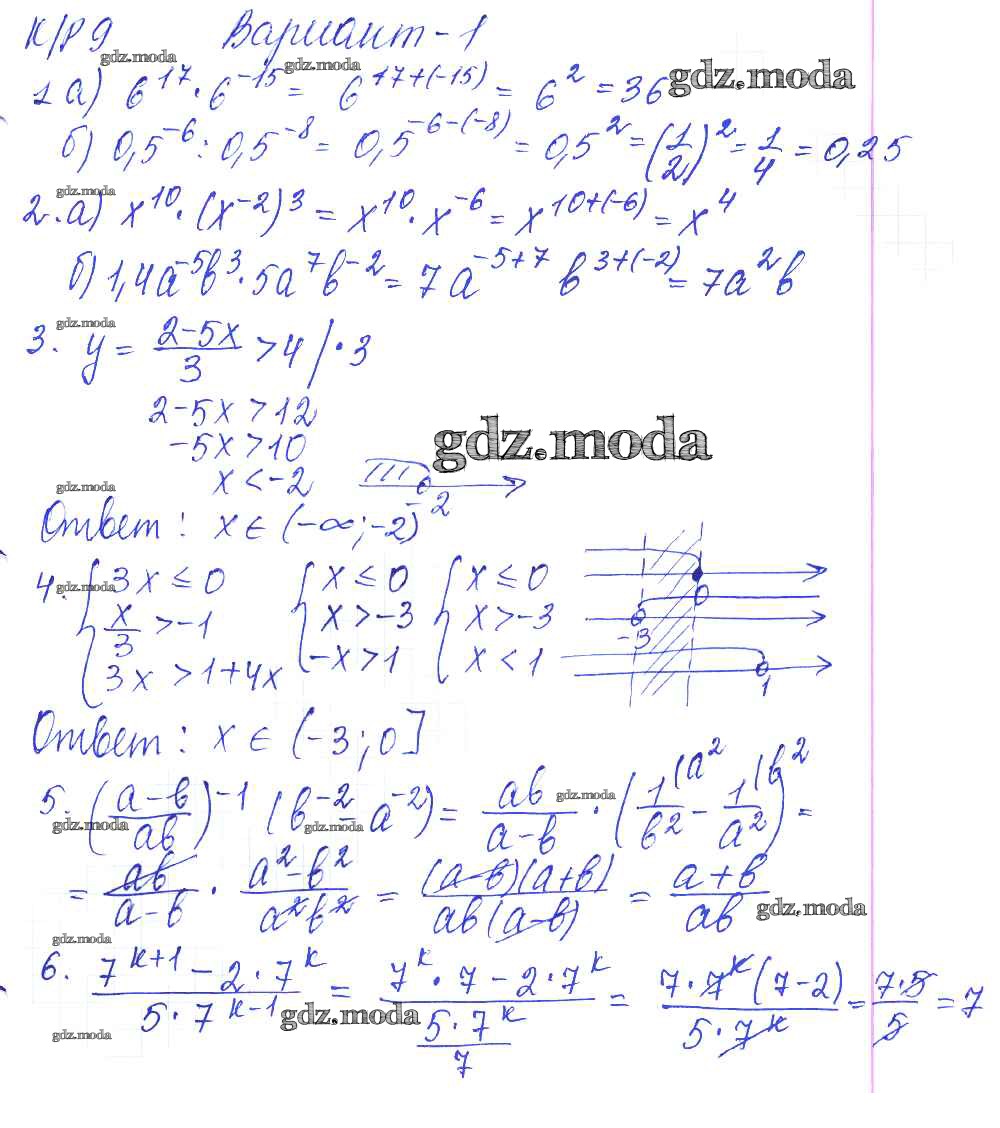 К/Р 9 Вариант - 1
gdz.moda gdz.moda
1 а) 6^17 · 6^-15 = 6^17+(-15) = 6^2 = 36 gdz.moda
б) 0,5^-6 : 0,5^-8 = 0,5^-6-(-8) = 0,5^2 = (1/2)^2 = 1/4 = 0,25
gdz.moda
2. а) x^10 · (x^-2)^3 = x^10 · x^-6 = x^10+(-6) = x^4
б) 1,4a^-5b^3 · 5a^7b^-2 = 7a^-5+7 b^3+(-2) = 7a^2b
gdz.moda
3. y = (2-5x)/3 > 4 / · 3
2-5x > 12
-5x > 10
gdz.moda
x < -2
gdz.moda
-2
Ответ: x ∈ (-∞; -2)
4. gdz.moda { 3x ≤ 0 { x ≤ 0 { x ≤ 0 0
x/3 > -1 x > -3 x > -3 -3
3x > 1+4x -x > 1 x < 1 1
Ответ: x ∈ (-3; 0]
5. ((a-b)/ab)^-1 (b^-2 - a^-2) = ab/(a-b) · (1/b^2 (a^2 - 1/a^2 (b^2) =
gdz.moda gdz.moda gdz.moda
= ab/(a-b) · (a^2-b^2)/(a^2b^2) = (a-b)(a+b)/(ab(a-b)) = (a+b)/ab gdz.moda
gdz.moda
6. (7^k+1 - 2·7^k)/(5·7^k-1) = (7^k · 7 - 2·7^k)/(5·7^k/7) = 7·7^k(7-2)/(5·7^k) = 7·5/5 = 7
gdz.moda
gdz.moda